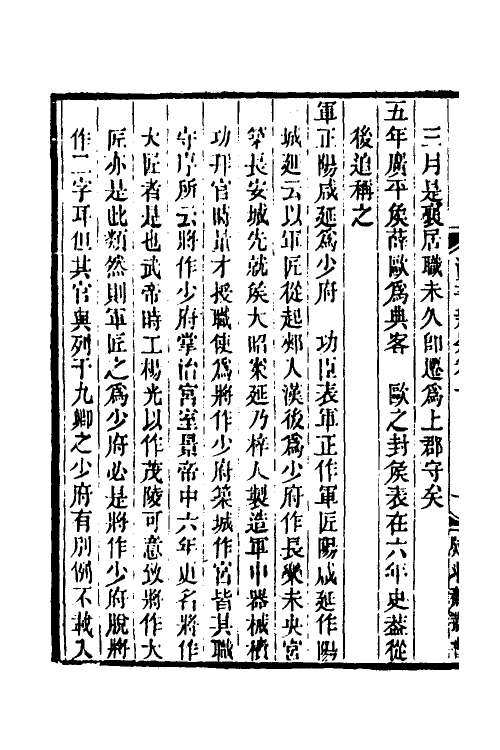 三月是襄居職未久卽遷爲上郡守矣
五年廣平矦薛歐爲典客　歐之封矦表在六年史蓋從
後追稱之
軍正陽咸延爲少府　功臣表軍正作軍匠陽咸延作陽
城延云以軍匠從起郟入漢後爲少府作長樂未央宮
築長安城先就矦大昭案延乃梓人製造軍中器械積
功拜官時量才授職使爲將作少府築城作宮皆其職
守序所云將作少府掌治宮室景帝中六年更名將作
大匠者是也武帝時工楊光以作茂陵可意致將作大
匠亦是此類然則軍匠之爲少府必是將作少府脫將
作二字耳但其官與列于九卿之少府有別例不載入